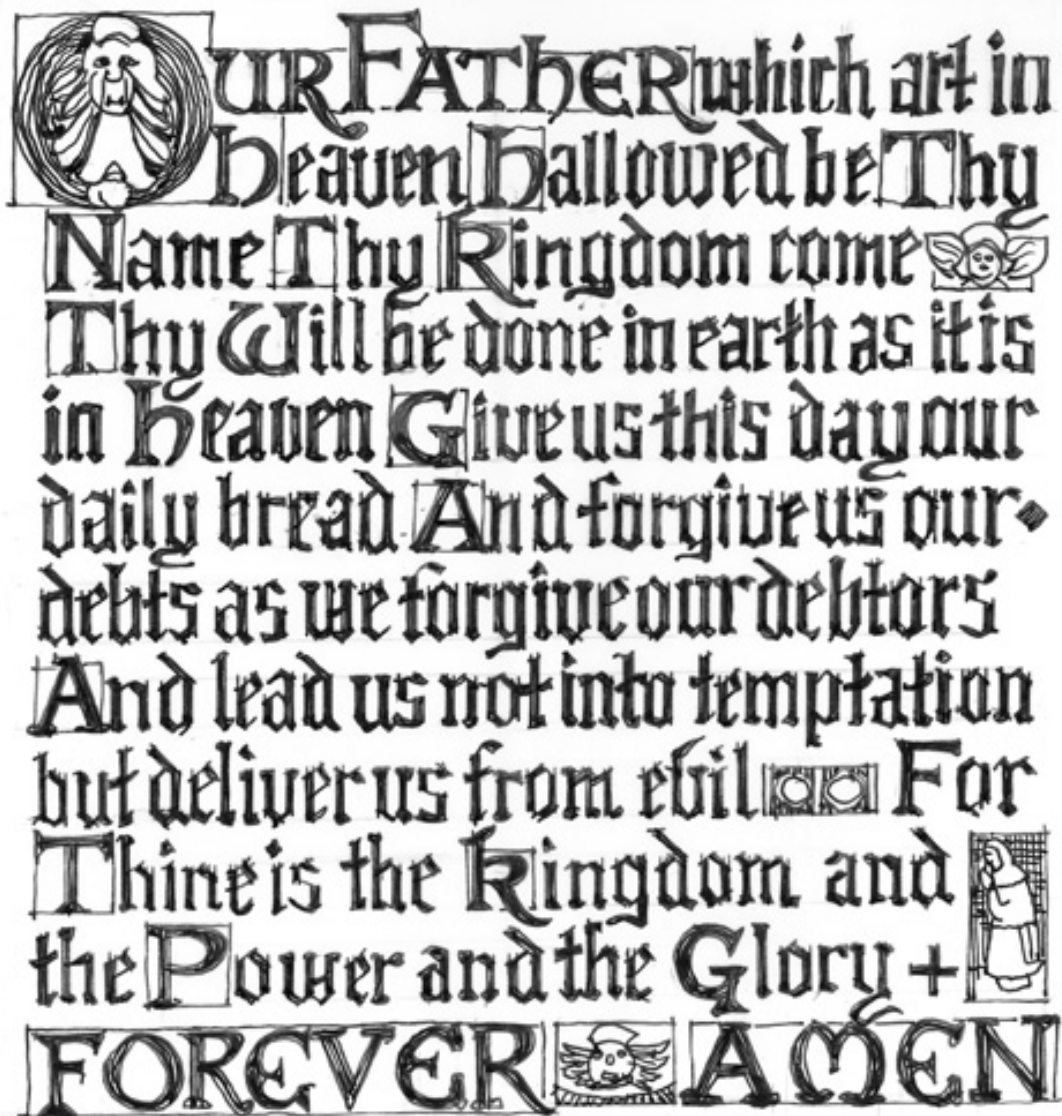 OUR FATHER which art in
Heaven Hallowed be Thy
Name Thy Kingdom come
Thy Will be done in earth as it is
in Heaven Give us this day our
daily bread And forgive us our
debts as we forgive our debtors
And lead us not into temptation
but deliver us from evil For
Thine is the Kingdom and
the Power and the Glory +
FOREVER AMEN